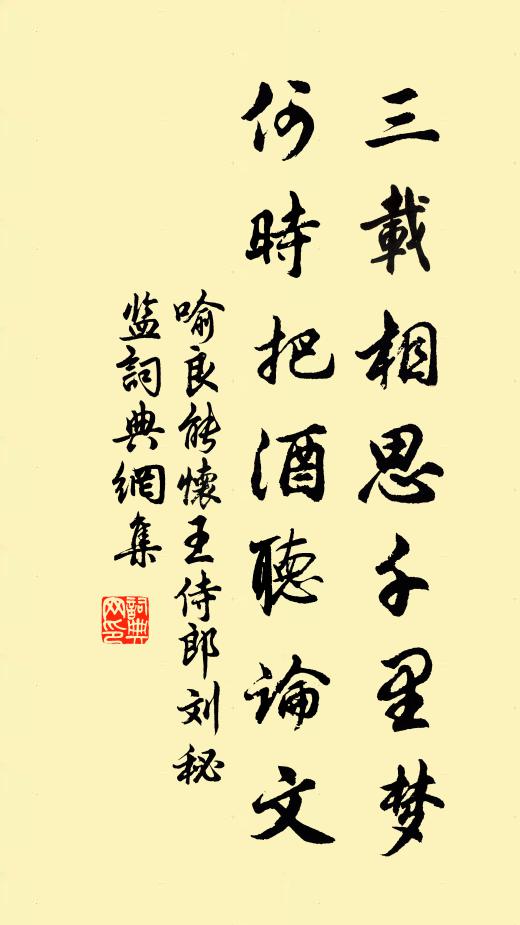 三載相思千里梦
何時把酒聽論文
喻良能懷王侍郎刘秘
监詞典網集
詞典
网印